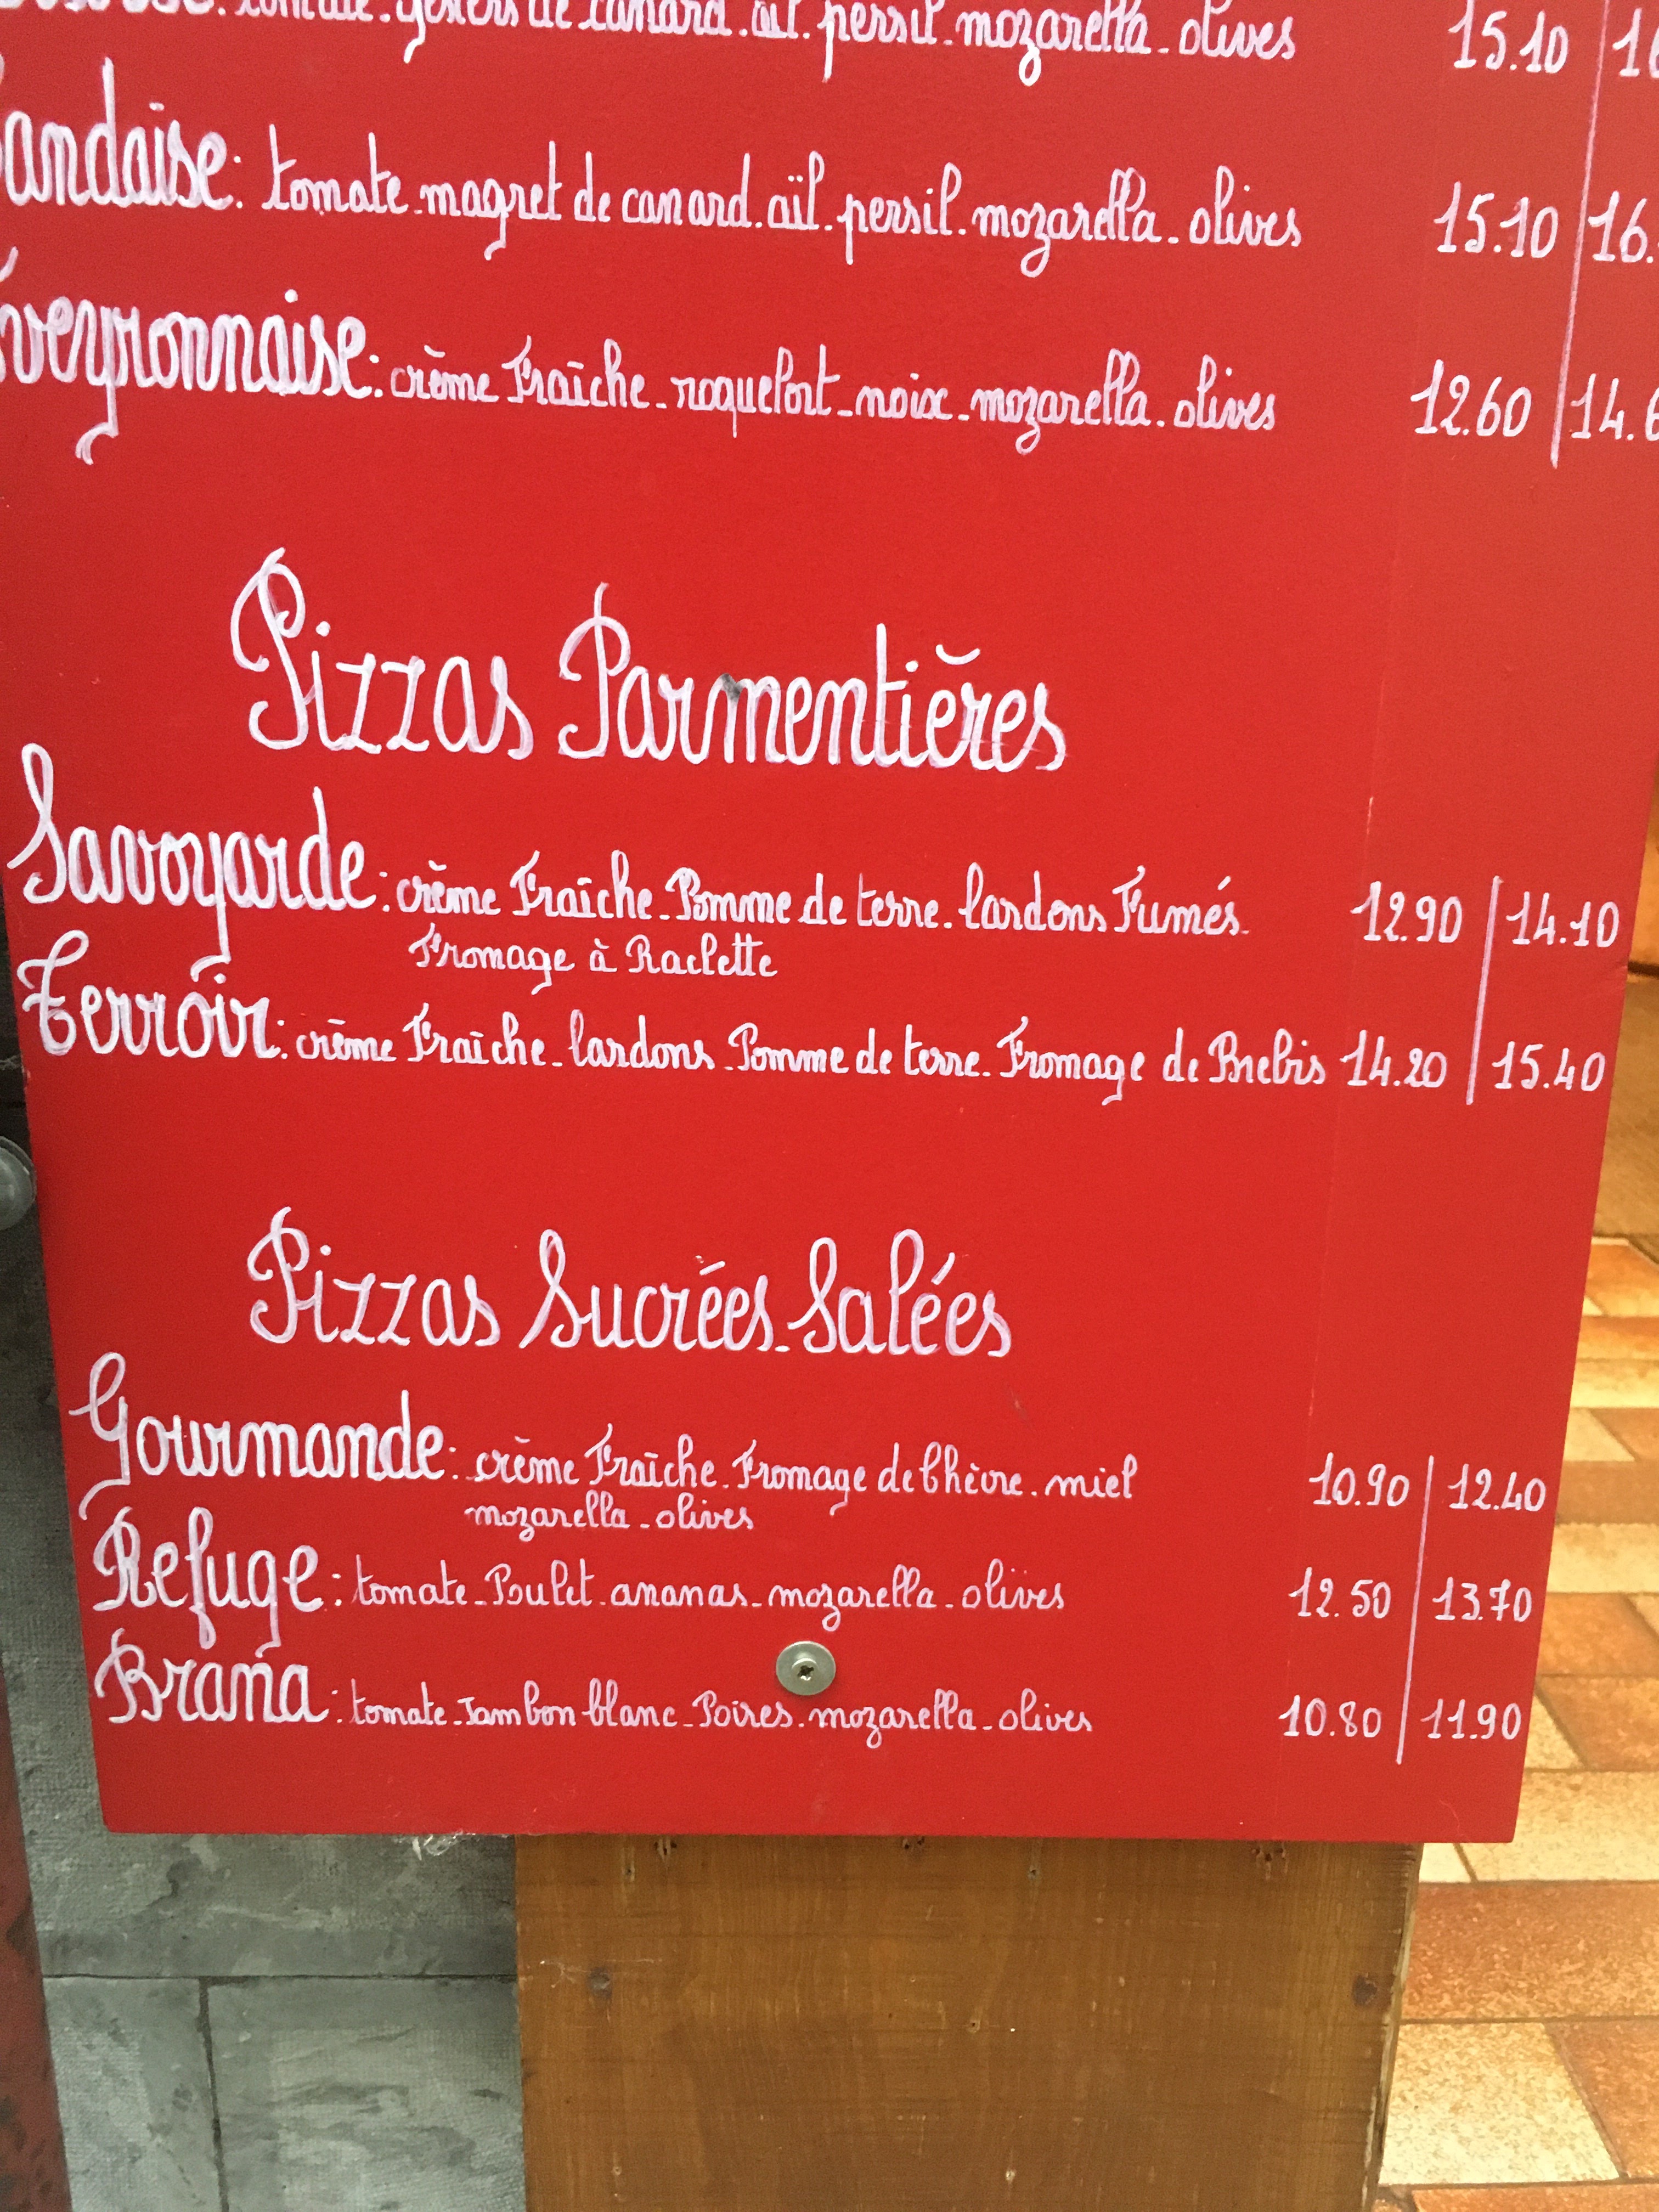 tomate. gésiers de canard. aïl. persil. mozarella. olives 15.10
andaise: tomate. magret de canard. aïl. persil. mozarella. olives 15.10 | 16.
veyronnaise: crème Fraîche. roquefort. noix. mozarella. olives 12.60 | 14.6
Pizzas Parmentières
Savoyarde: crème Fraîche. Pomme de terre. lardons Fumés. 12.90 | 14.10
Fromage à Raclette
Terroir: crème Fraîche. lardons. Pomme de terre. Fromage de Brebis 14.20 | 15.40
Pizzas Sucrées-Salées
Gourmande: crème Fraîche. Fromage de Chèvre. miel 10.90 | 12.40
mozarella. olives
Refuge: tomate. Poulet. ananas. mozarella. olives 12.50 | 13.70
Braña: tomate. Jambon blanc. Poires. mozarella. olives 10.80 | 11.90